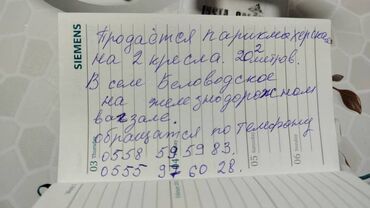 SIEMENS
Продаётся парикмахерская
на 2 кресла. 20² метров.
В селе Беловодское
на железнодорожном
вагзале.
обращатся по телефону
0558 59 59 83.
0555 91 60 28.
03 Thursday
05
06